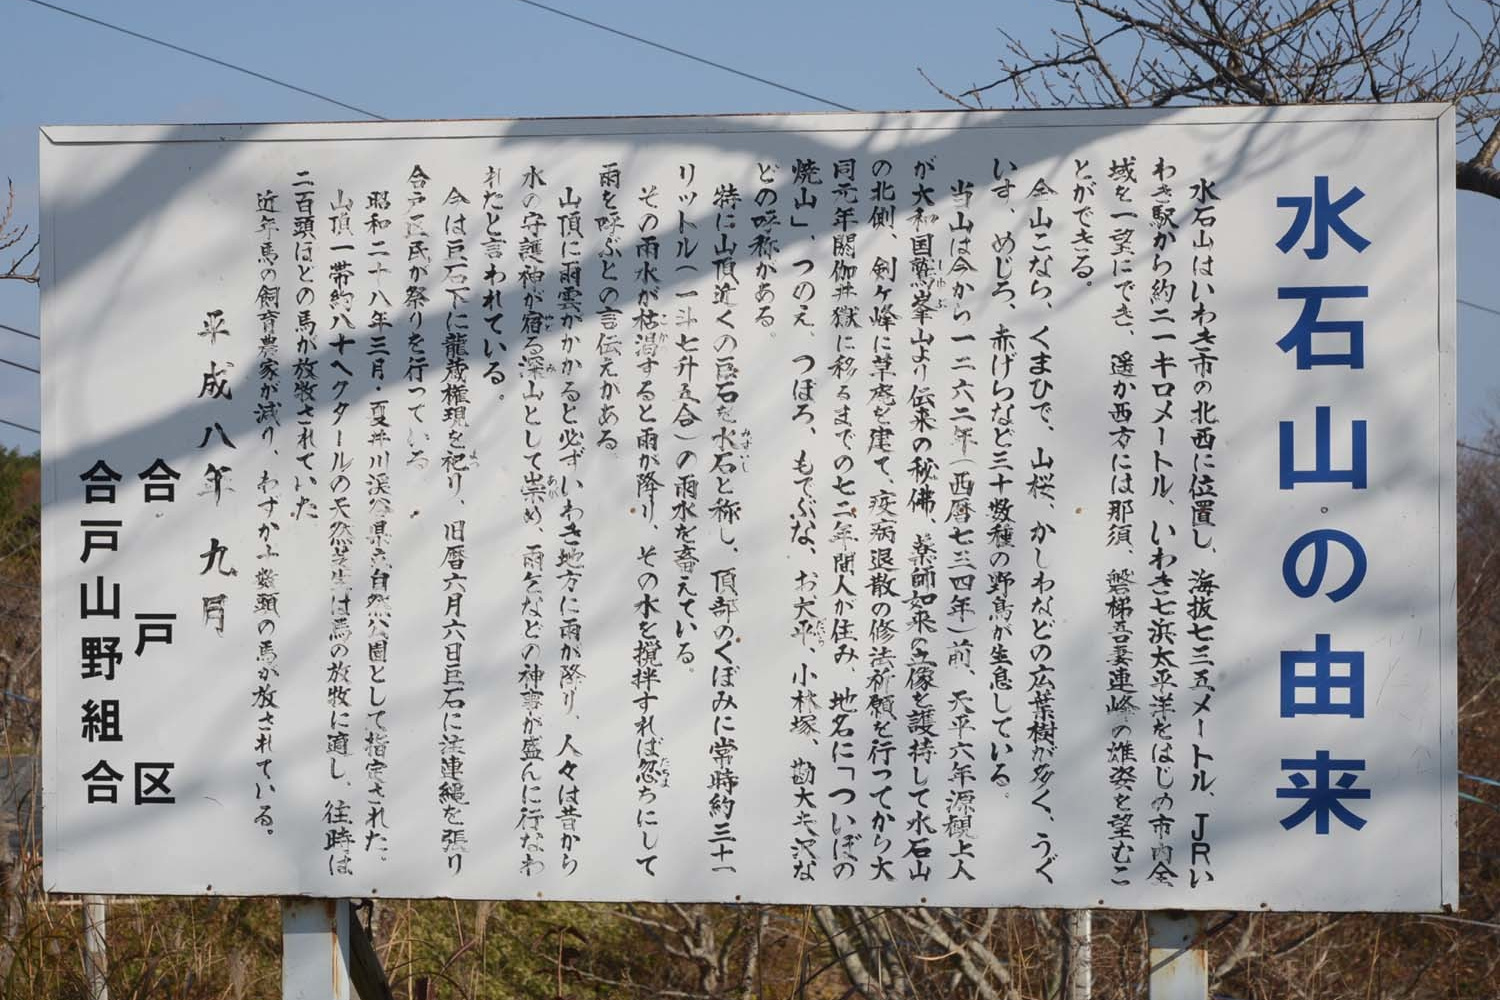 水石山の由来
水石山はいわき市の北西に位置し、海抜七三五メートル、JRい
わき駅から約二一キロメートル、いわき七浜太平洋をはじめ市内全
域を一望にでき、遥か西方には那須、磐梯吾妻連峰の雄姿を望むこ
とができる。
全山こなら、くまひで、山桜、かしわなどの広葉樹が多く、うぐ
いす、めじろ、赤げらなど三十数種の野鳥が生息している。
当山は今から一二六二年(西暦七三四年)前、天平六年源観上人
が大和国鷲峯山より伝来の秘佛、薬師如来の立像を護持して水石山
の北側、剣ヶ峰に草庵を建て、疫病退散の修法祈願を行ってから大
同元年閼伽井嶽に移るまでの七二年間人が住み、地名に「ついぼの
焼山」、つのえ、つぼろ、もでぶな、お大平、小林塚、勘大夫沢な
どの呼称がある。
特に山頂近くの巨石を水石と称し、頂部のくぼみに常時約三十一
リットル(一斗七升五合)の雨水を蓄えている。
その雨水が枯渇すると雨が降り、その水を撹拌すれば忽ちにして
雨を呼ぶとの言伝えがある
山頂に雨雲がかかると必ずいわき地方に雨が降り、人々は昔から
水の守護神が宿る深山として崇め、雨乞などの神事が盛んに行なわ
れたと言われている。
今は巨石下に龍蔵権現を祀り、旧暦六月六日巨石に注連縄を張り
合戸区民が祭りを行っている
昭和二十八年三月・夏井川渓谷県立自然公園として指定された。
山頂一帯約八十ヘクタールの天然芝生は馬の放牧に適し、往時は
二百頭ほどの馬が放牧されていた
近年馬の飼育農家が減り、わずか十数頭の馬が放されている。
平成八年九月
合戸区
合戸山野組合